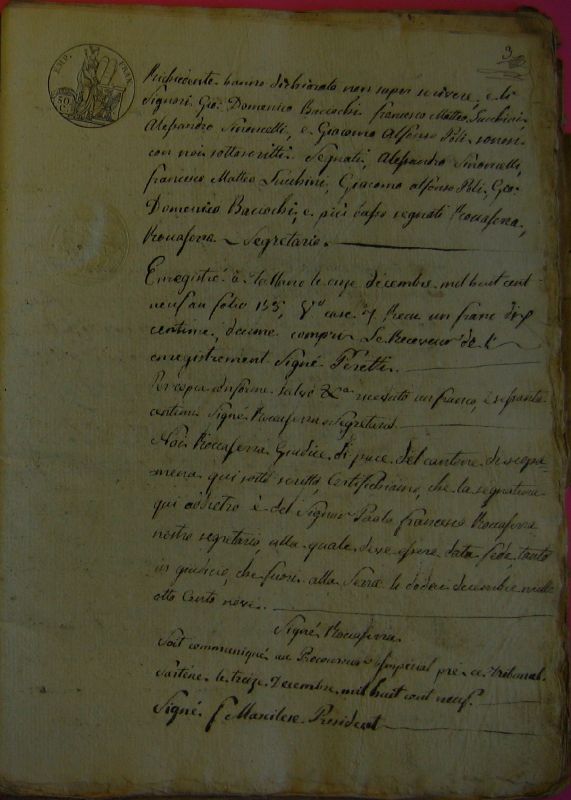 3
EMP. FRAN.
50 C.
Richiedente hanno dichiarato non saper scrivere, e li
Signori Gio: Domenico Baciochi, francesco Matteo Lucchini,
Alessandro Simonetti, e Giacomo Alfonso Poli sonon
con noi sottoscritti. Segnati, Alessandro Simonetti,
francesco Matteo Lucchini, Giacomo alfonso Poli, Gio:
Domenico Baciochi, e più basso segnati Roccaserra,
Roccaserra Segretario.
Enregistré à Tallano le onze décembre mil huit cent
neuf au folio 155, Vo case 7 Reçu un franc dix
centime, décime compris Le Receveur de l'
enregistrement Signé Peretti.
Per copia conforme salvo &a ricevuto un franco, e
centimi Signé Roccaserra Segretario.
Noi Roccaserra Giudice di pace del cantone di scopa
mena qui sotto scritto, Certifichiamo, che la segnatura
qui addietro è del Signor Paolo francesco Roccaserra
nostro segretario, alla quale deve essere data fede, tanto
in giudicio, che fuori alla Serra li dodeci decembre mille
otto Cento nove.
Signé Roccaserra
Soit communiqué au Procureur Impérial près ce tribunal
Sartène le treize Décembre mil huit cent neuf.
Signé f Président